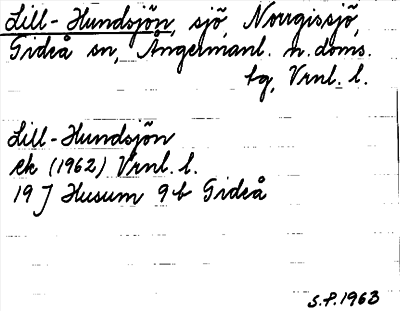 Lill-Hundsjön, sjö, Norrgissjö,
Gideå sn, Ångermanl. n. doms.
tg, Vrnl. l.
Lill-Hundsjön
ek (1962) Vrnl. l.
19 J Husum 9b Gideå
S.P. 1963